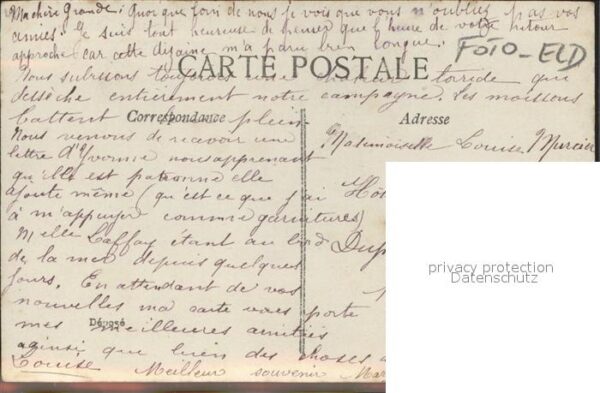 Ma chère Grande: Quoi que loin de nous je vois que vous n'oubliez pas vos
amies. Je suis tout heureuse de penser que l'heure de votre retour
approche car cette dizaine m'a paru bien longue.
FOTO-ELD
CARTE POSTALE
Nous subissons toujours une torride qui
dessèche entièrement notre campagne. Les moissons
battent plein
Correspondance
Adresse
Nous venons de recevoir une
lettre d'Yvonne nous apprenant
qu'elle est patronne elle
ajoute même (qu'est ce que j'ai
à m'appuyer comme garnitures)
Melle étant au bord
de la mer depuis quelques
jours. En attendant de vos
nouvelles ma carte vous porte
mes meilleures amitiés
ainsi que bien des choses
Louise Meilleur souvenir
Déposé
Mademoiselle Louise Mercier
privacy protection
Datenschutz